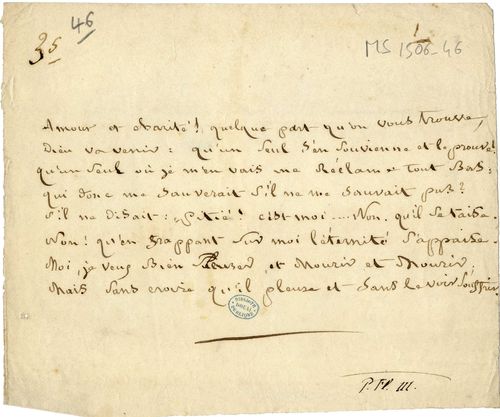 46
35
1
MS 1506-46
Amour et charité! quelque part qu'on vous trouve,
Dieu va venir: qu'un seul s'en souvienne et le prouve!
qu'un seul où je m'en vais me réclame tout bas:
qui donc me sauverait s'il ne me sauvait pas?
s'il ne disait: „Pitié! c'est moi .... Non, qu'il se taise.
Non! qu'en frappant sur moi l'éternité s'appaise.
Moi, je veux bien pleurer, et mourir et mourir,
Mais sans croire qu'il pleure et sans le voir souffrir.
BIBLIOTH
DOUAI
P. Fl. III.